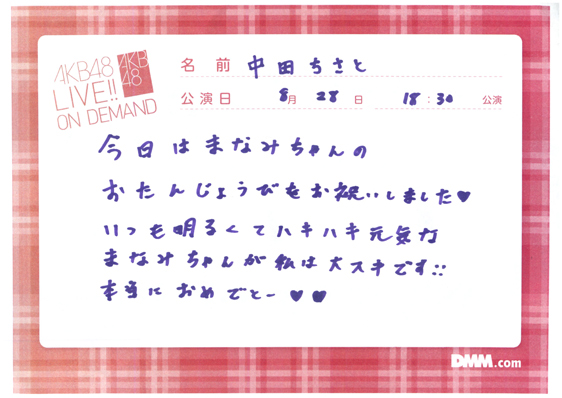 AKB48
LIVE!!
ON DEMAND
AKB
48
名 前 中田ちさと
公演日 8月 28日 18:30 公演
今日はまなみちゃんの
おたんじょうびをお祝いしました♥
いつも明るくてハキハキ元気な
まなみちゃんが私は大スキです!!
本当におめでとー♥♥
DMM.com